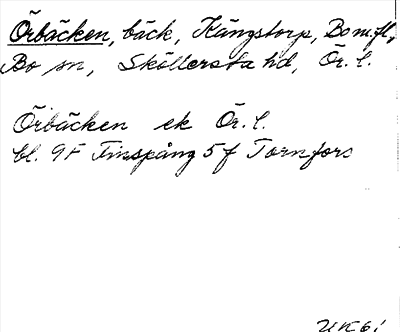 Örbäcken, bäck, Kängstorp, Bo m.fl.,
Bo sn, Sköllersta hd, Ör. l.
Örbäcken ek Ör. l.
bl. 9F Finspång 5f Tornfors